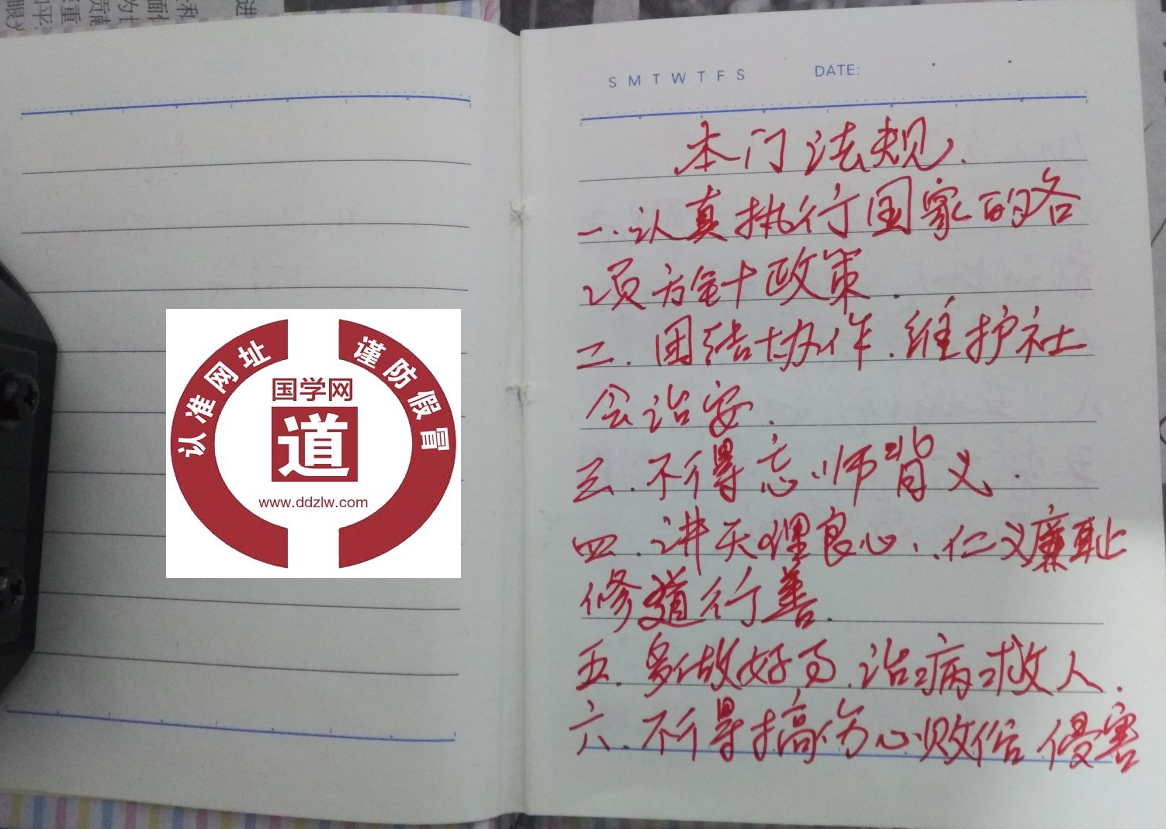 认准网址 谨防假冒
国学网
道
www.ddzlw.com
S M T W T F S DATE:
本门法规.
一.认真执行国家的各
项方针政策.
二.团结协作.维护社
会治安.
三.不得忘师背义.
四.讲天理良心.仁义廉耻
修道行善.
五.多做好事.治病救人.
六.不得搞伤心败俗 侵害